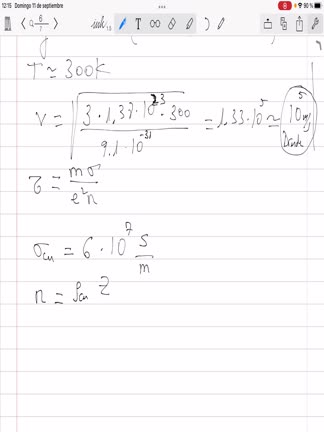 12:15 Domingo 11 de septiembre
90 %
6
T ≃ 300K
V = √(3 · 1,37 · 10^23 · 300 / 9,1 · 10^-31) = 1,33 · 10^5 ≃ 10^5 m/s
Drude
τ = mσ / e²n
σcu = 6 · 10^7 S/m
n = ρcu Z